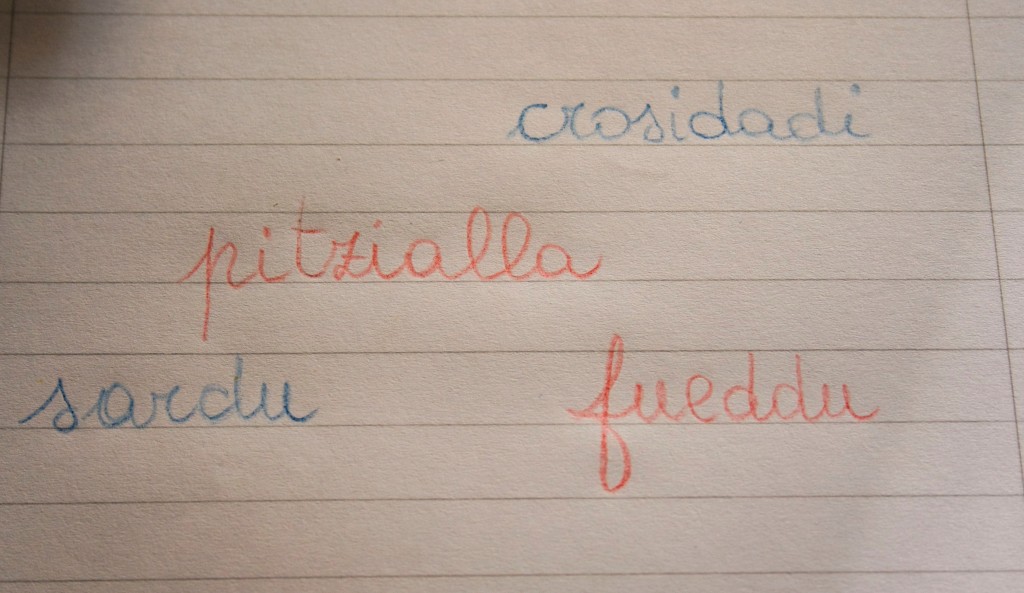 crosidadi
pitzialla
sardu fueddu